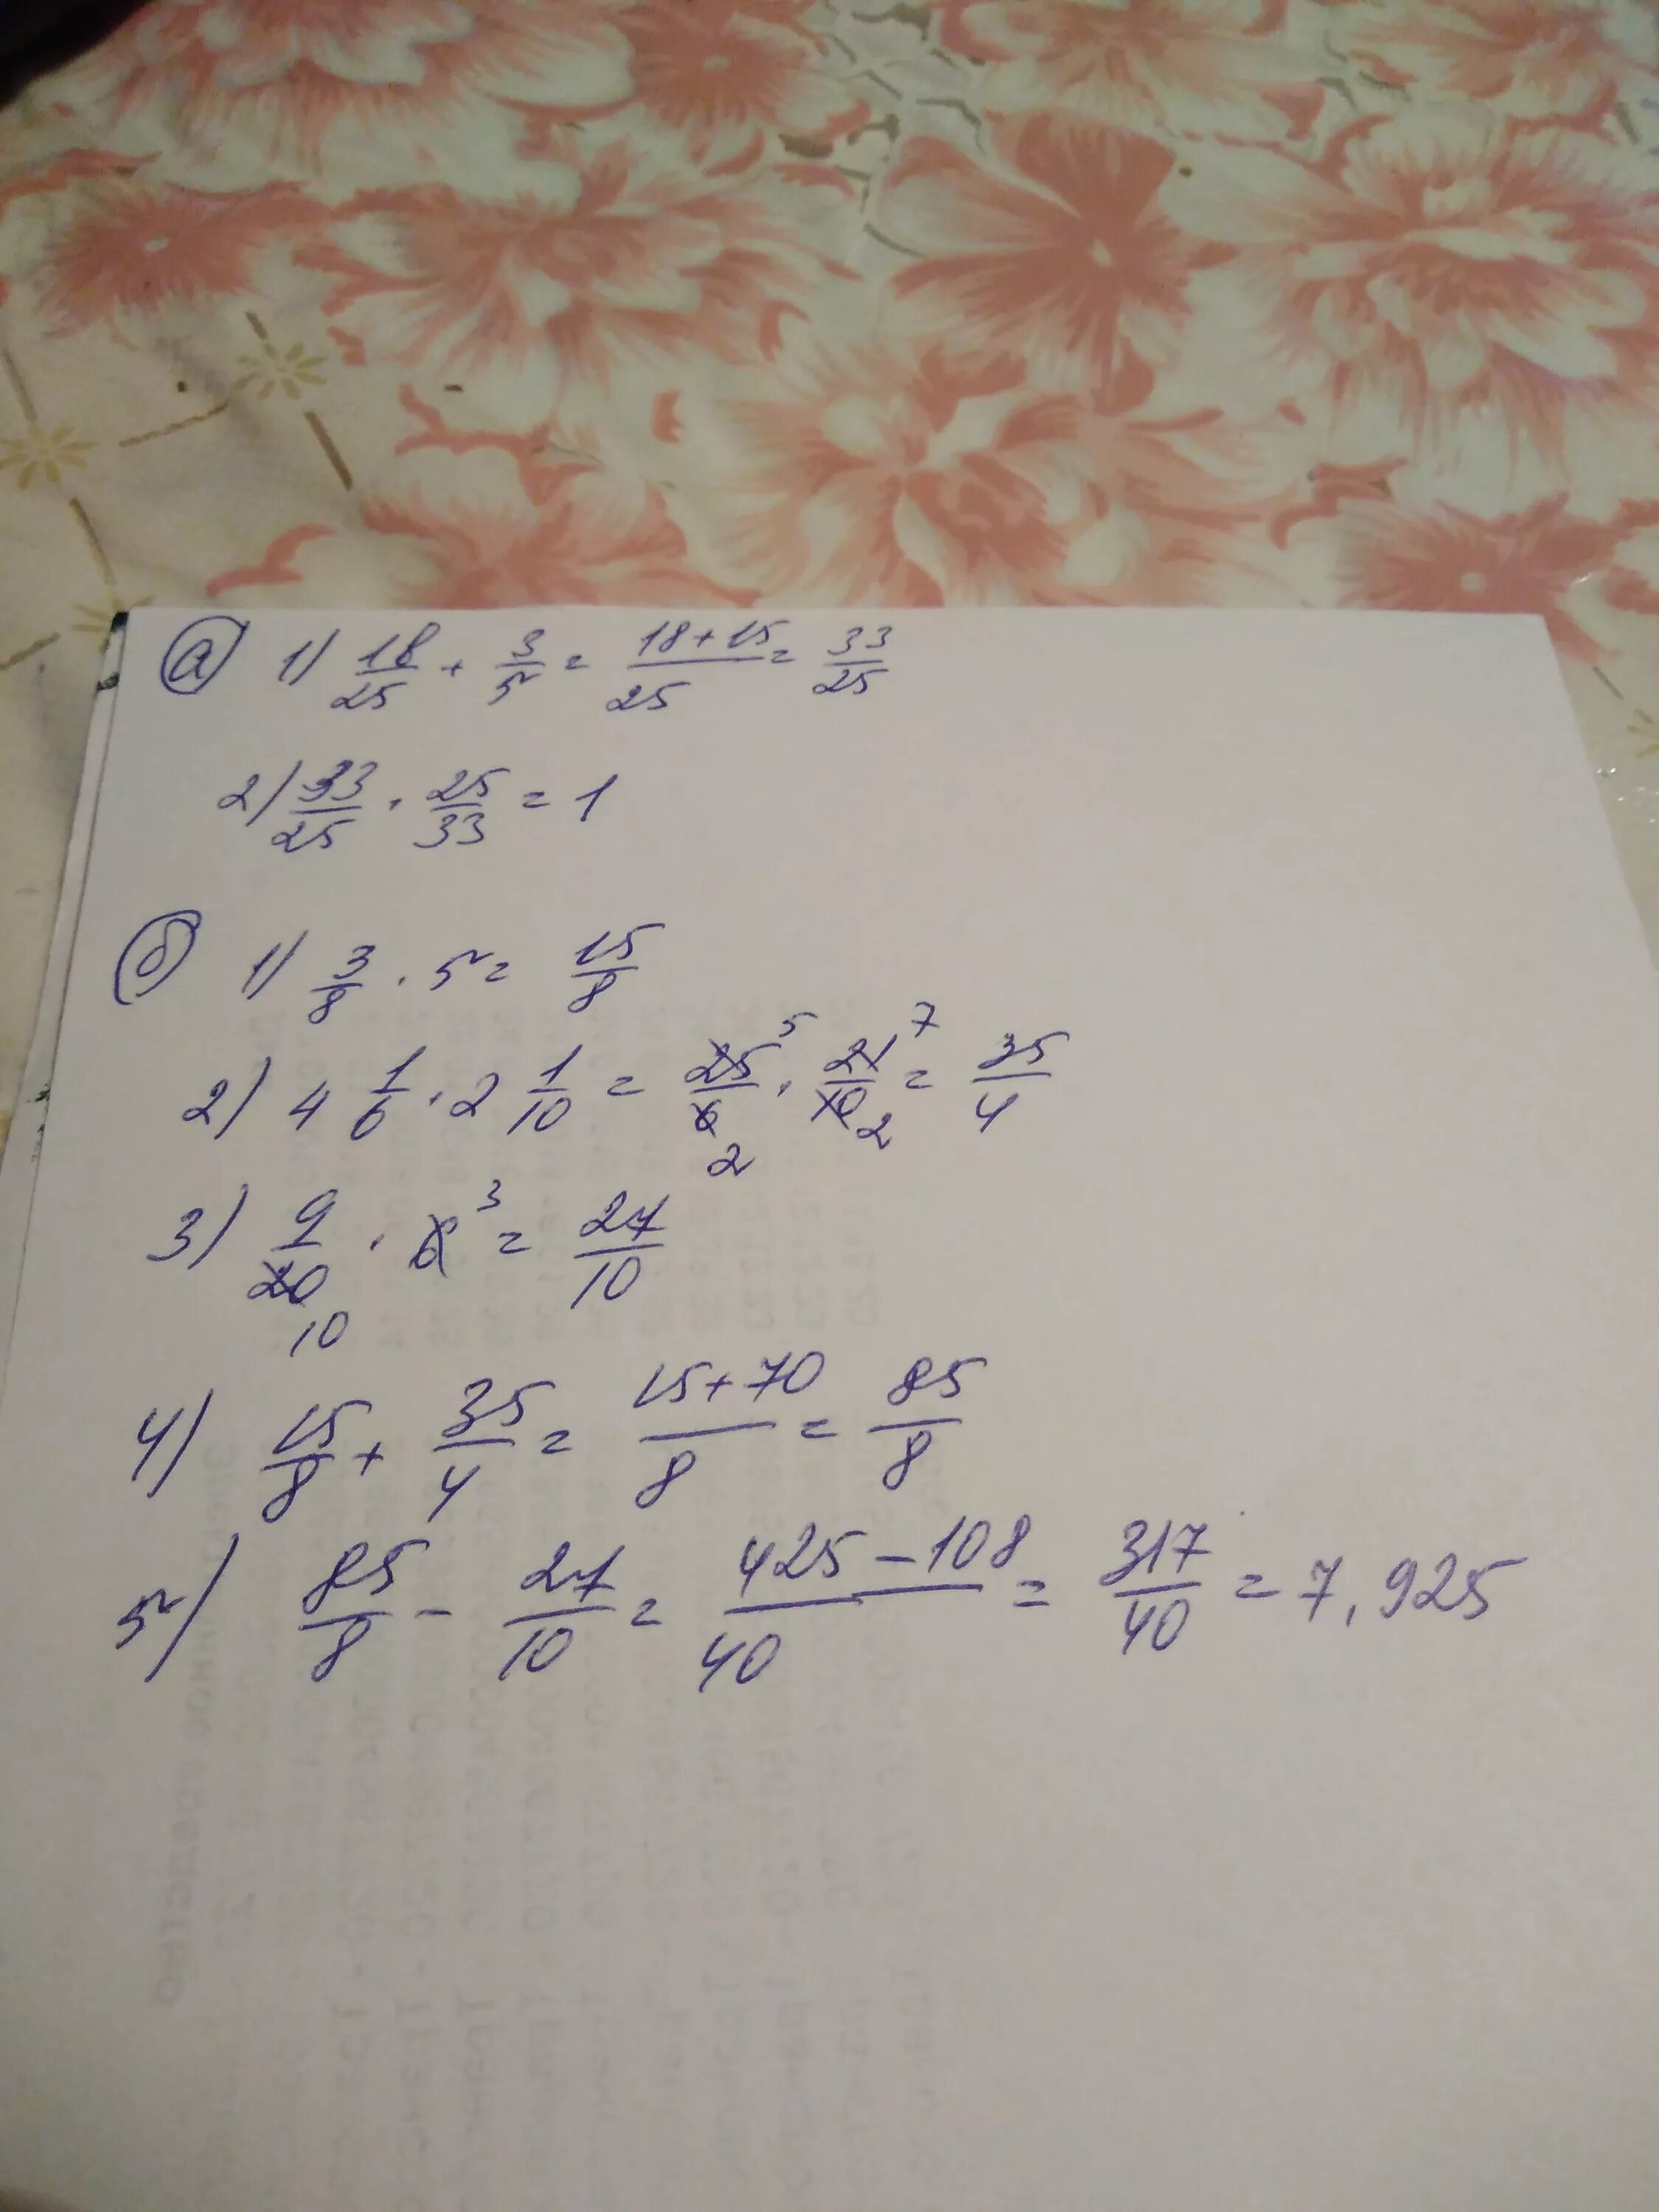 а) 1) 18/25 + 3/5 = (18+15)/25 = 33/25
2) 33/25 · 25/33 = 1
б) 1) 3/8 · 5 = 15/8
2) 4 1/6 · 2 1/10 = 25/6 · 21/10 = 35/4
5 7
2 2
3) 9/20 · 6 = 27/10
3
10
4) 15/8 + 35/4 = (15+70)/8 = 85/8
5) 85/8 - 27/10 = (425-108)/40 = 317/40 = 7,925